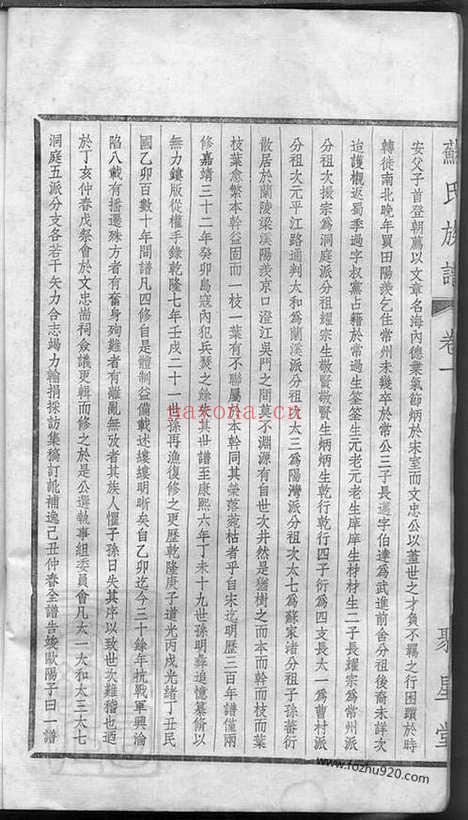 蘇氏族譜 卷一 聚星堂
安父子首登朝薦以文章名海內德業氣節炳於宋室而文忠公以蓋世之才負不羈之行困躓於時
轉徙南北晚年買田陽羨乞住常州未幾卒於常公三子長邁字伯達為武進前舍分祖後裔未詳次
迨護櫬返蜀季過字叔黨占籍於常過生籥籥生元老元老生庠庠生材材生二子長耀宗為常州派
分祖次振宗為洞庭派分祖耀宗生敬賢敬賢生炳炳生乾行乾行四子衍為四支長太一為曹村派
分祖次元平江路通判太和為蘭溪派分祖次太三為陽灣派分祖次太七為蘇家渚分祖子孫蕃衍
散居於蘭陵梁溪陽羨京口澄江吳門之間莫不淵源有自世次井然是猶樹之而本而幹而枝而葉
枝葉愈繁本幹益固而一枝一葉有不聯屬於本幹同其榮落菀枯者乎自宋迄明歷三百年譜僅兩
修嘉靖三十二年癸卯島寇內犯兵燹之餘失其世譜至康熙六年丁未十九世孫明彝追憶纂脩以
無力鐫版從權手錄乾隆七年壬戌二十一世孫再漁復修之更歷乾隆庚子道光丙戌光緒丁丑民
國乙卯百數十年間譜凡四修自是體制益備載述縷縷明晰矣自乙卯迄今三十餘年抗戰軍興淪
陷八載有播遷殊方者有奮身殉難者有離亂無攷者其族人懼子孫日失其序以致世次難稽也迺
於丁亥仲春戊祭會於文忠耑祠僉議更輯而修之於是公選執事組委員會凡太一太和太三太七
洞庭五派分支各若干矢力合志竭力輸捐採訪集稿訂訛補逸己丑仲春全譜告竣歐陽子曰一譜
naxona.cn
www.fozhu920.com